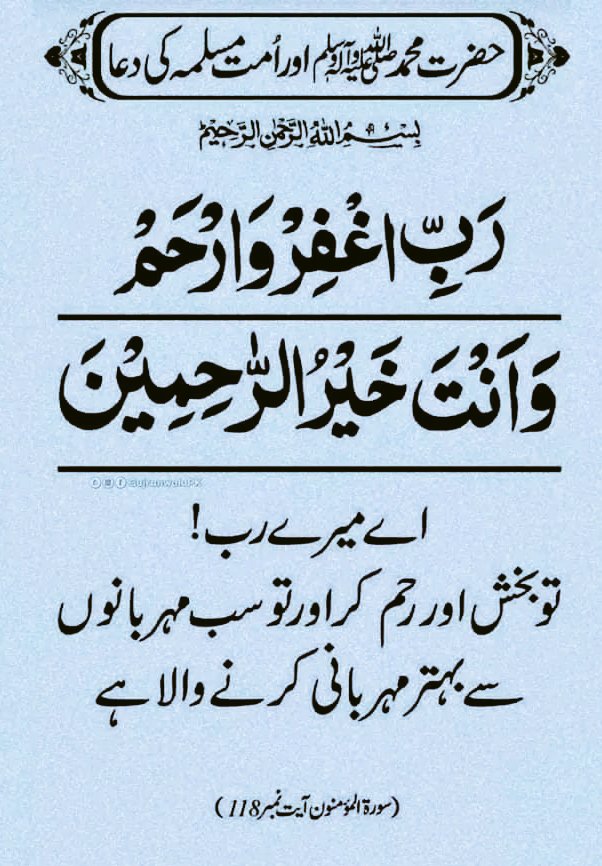 حضرت محمد صلی اللہ علیہ وآلہ وسلم اور اُمت مسلمہ کی دعا
بِسْمِ اللهِ الرَّحْمٰنِ الرَّحِيْمِ
رَبِّ اغْفِرْ وَارْحَمْ
وَاَنْتَ خَيْرُ الرّٰحِمِيْنَ
GujranwalaPK
اے میرے رب!
تو بخش اور رحم کر اور تو سب مہربانوں
سے بہتر مہربانی کرنے والا ہے
(سورۃ المؤمنون آیت نمبر 118)